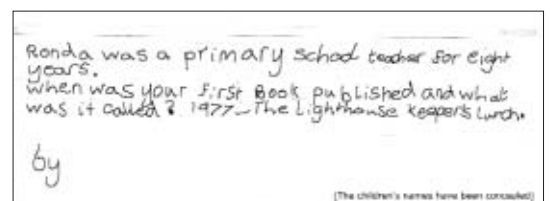 Ronda was a primary school teacher for eight
years.
when was your first Book published and what
was it called? 1977 - The Lighthouse keeper's Lunch.
by
[The children's names have been concealed]